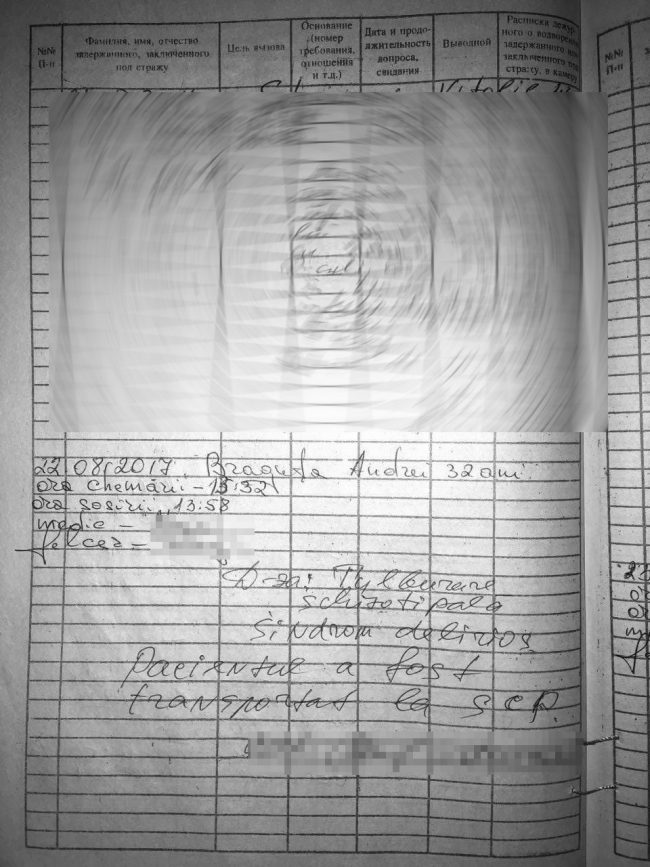 №№
П-п
Фамилия, имя, отчество
задержанного, заключенного
под стражу
Цель вызова
Основание
(номер
требования,
отношения
и т.д.)
Дата и продо-
лжительность
допроса,
свидания
Выводной
Расписка дежур-
ного о водворении
задержанного или
заключенного под
стражу, в камеру
№№
П-п
22/08/2017. Braguța Andrei 32 ani.
ora chemării - 13:32
ora sosirii, 13:58
medic -
felcer =
D-za: Tulburare
schizotipală
Sindrom delirios
Pacientul a fost
transportat la SCP.